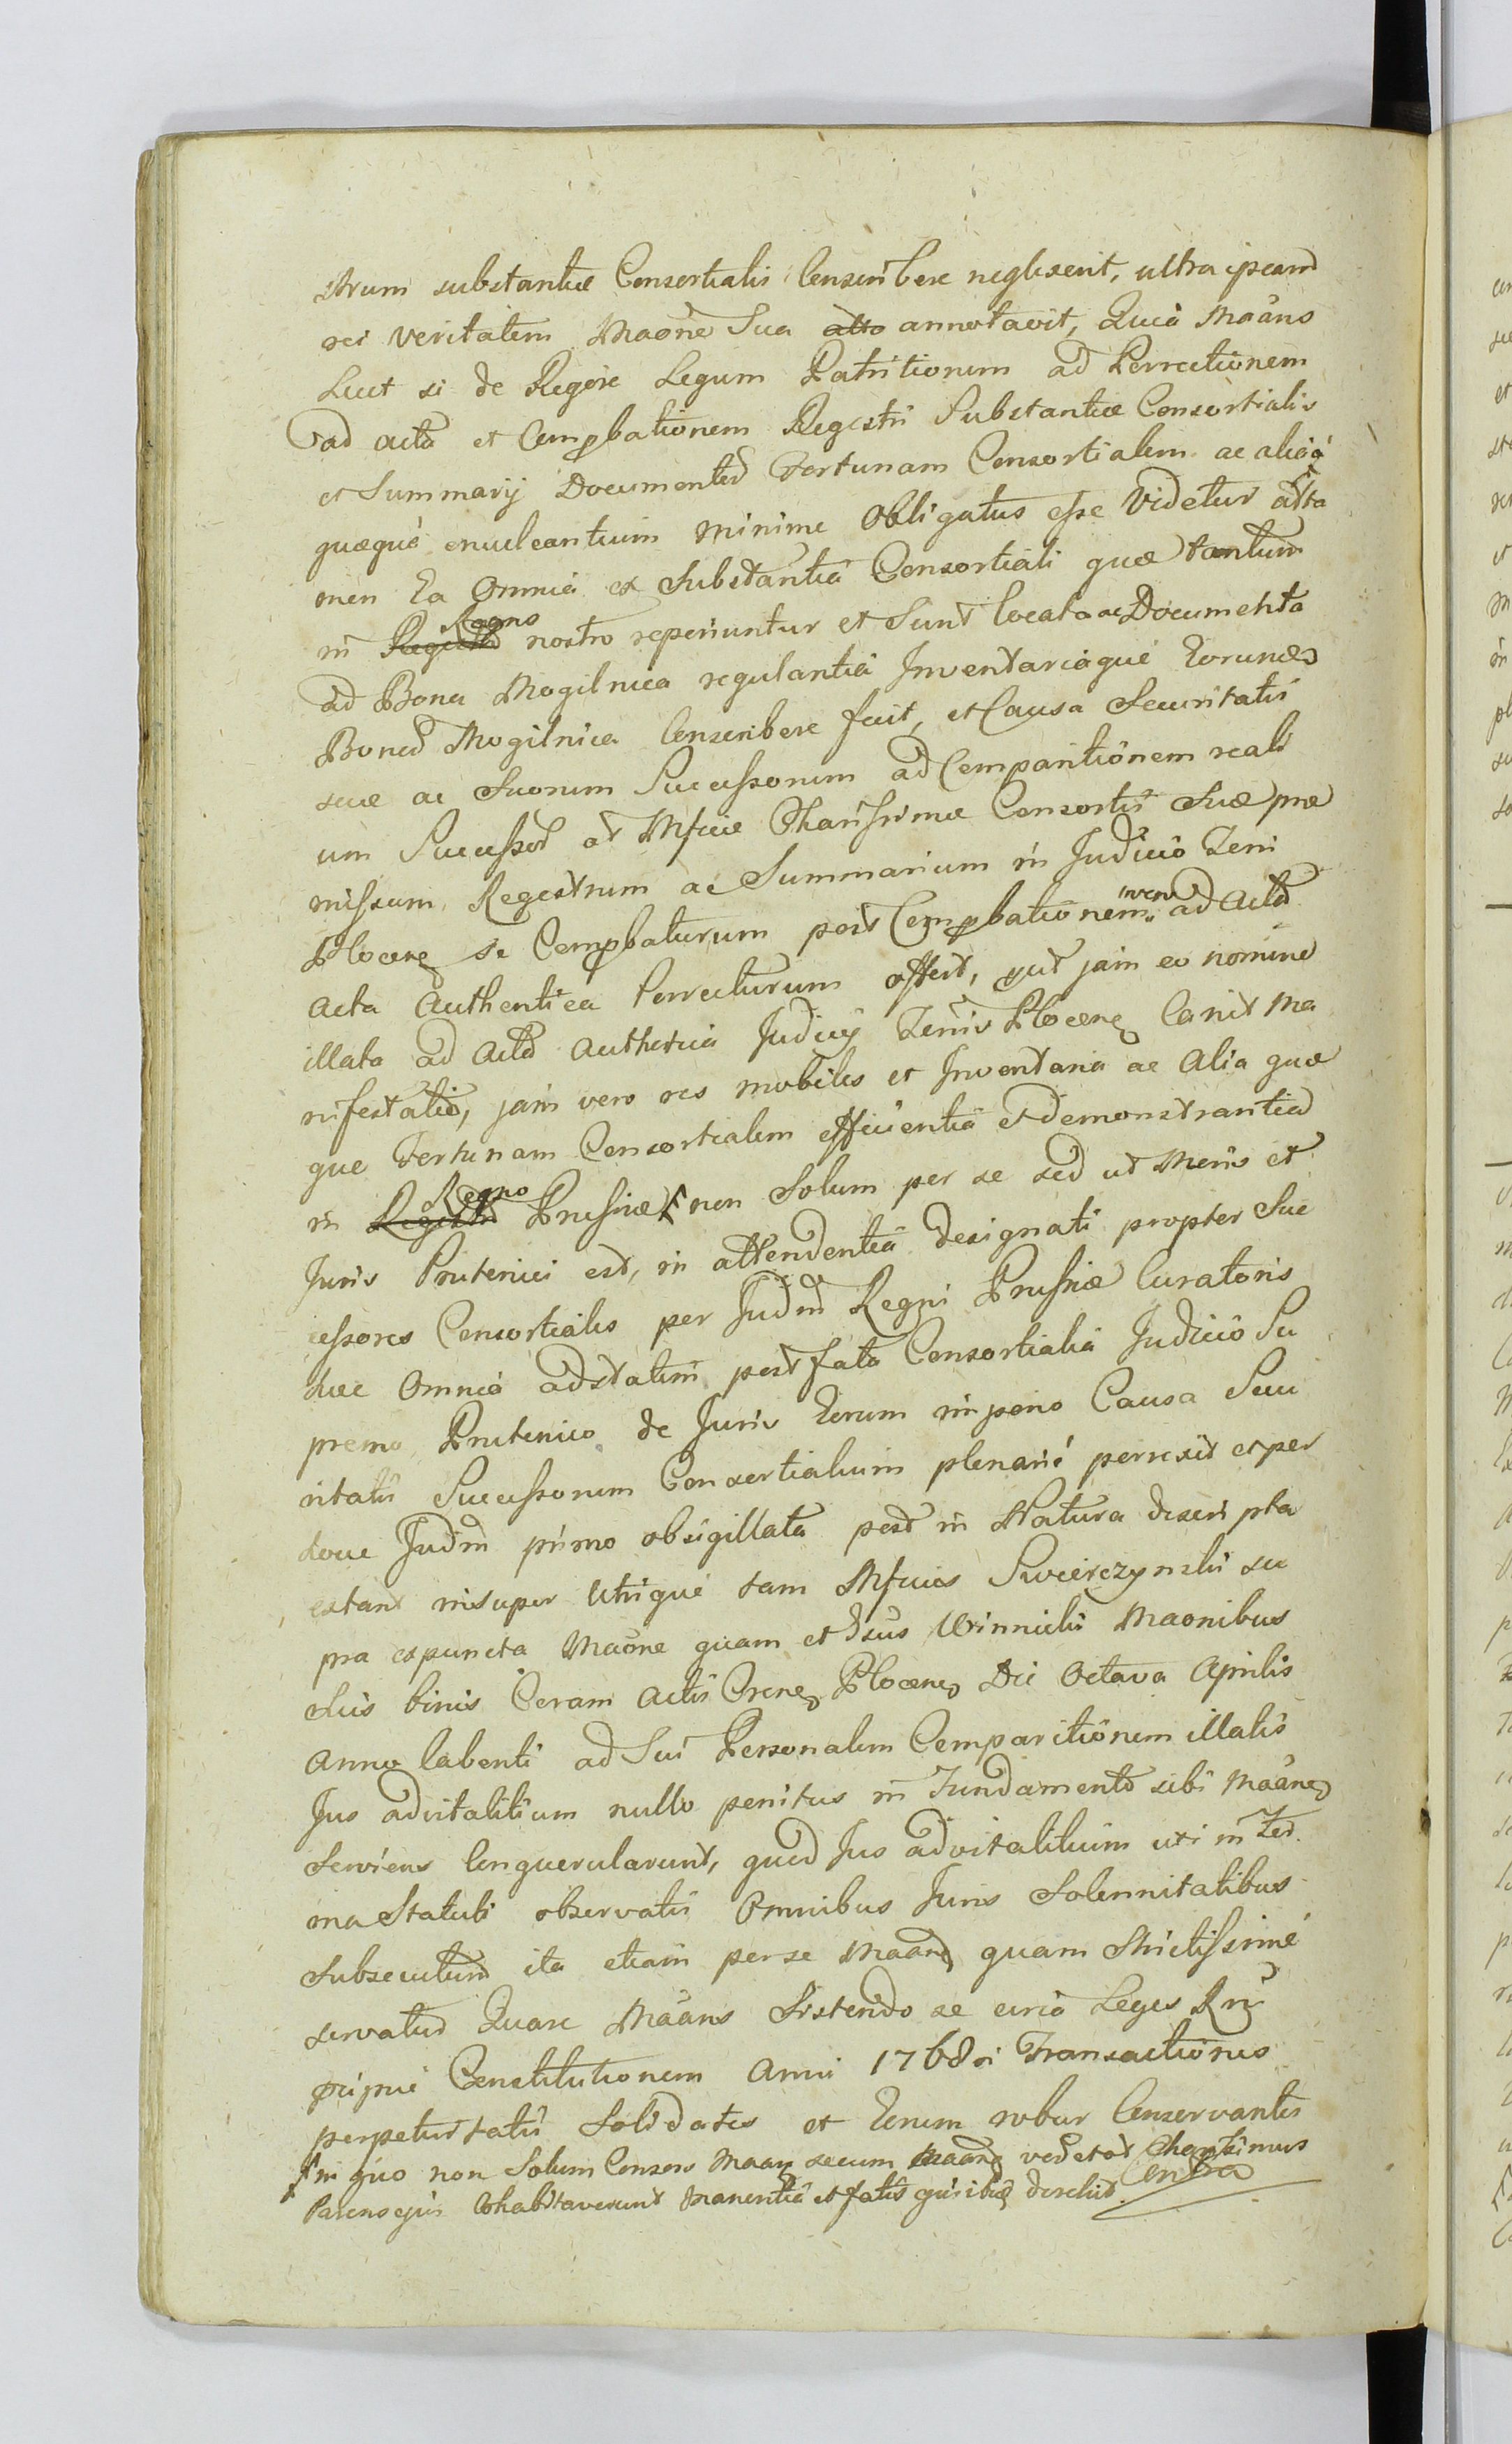 strum substantiæ Consortialis Conscribere neglexerit, ultra ipsam
rei veritatem Maone Sua atto annotavit, Quia Maans
Licet si de Rigore Legum Patritiorum ad Perrectionem
ad acta et Comprobationem Regestri Substantiæ Consortialis
et Summarij Documentor Fortunam Consortialem ac alia
quæque enucleantium minime Obligatus esse Videtur atta
men Ea Omnia ex Substantia Consortiali quæ tantum
in Regestro Regno nostro reperiuntur et Sunt locata ac Documenta
ad Bona Mogilnica regulantia Inventariaque Eorundem
Bonor Mogilnica Conscribere fecit, et Causa Securitatis
suæ ac Suorum Successorum ad Comparitionem reali
um Successor et Mfcæ Charissimæ Consortis Suæ præ
missum Regestrum ac Summarium in Judicio Terri
Plocen se Comprobaturum post Comprobationem vero ad acta
acta Authentica Perrecturum offert, prut jam eo nomine
illata ad acta authetica Judicij Terris Plocen Canit Ma
nifestatio, jam vero res mobiles et Inventaria ac Alia quæ
que Fortunam Consortialem efficientia et demonstrantia
in Regestro Regno Prussiæ non Solum per se sed ut Moris et
Juris Prutenici est, in attendentia designati propter Suc
cessores Consortiales per Judm Regni Prussiæ Curatoris
hæc Omnia adstatim post fata Consortialia Judicio Su
premo Prutenico de Juris Eorum imperio Causa Secu
ritatis Successorum Consortialium plenarie perrexit et per
hocce Judm primo obsigillata post in Natura descripta
extant insuper Utrique tam Mfcus Swierczynski su
pra expuncta Maone quam et Dsus Winnicki Maonibus
Suis binis Coram Actis Crens Plocens Die Octava Aprilis
Anno labenti ad Sui Personalem Comparitionem illatis
Jus advitalitium nullo penitus in Fundamento sibi Maane
Serviens Conquerularunt, quod Jus advitalitium uti in Ter
ma Statuti observatis Omnibus Juris Solennitatibus
Subsecutum ita etiam per se Maane quam Strictissime
servatur Quare Maans Sistendo se circa Leges
Constitutionem Anni 1768i Transactiones
perpetuitatis Solidates et Eorum robur Conservantes
in quo non Solum Consors Maan secum Maane verum etiam Charissimus
Parens ejus Cohabitaverunt Manentia et fatis derelicta Contra